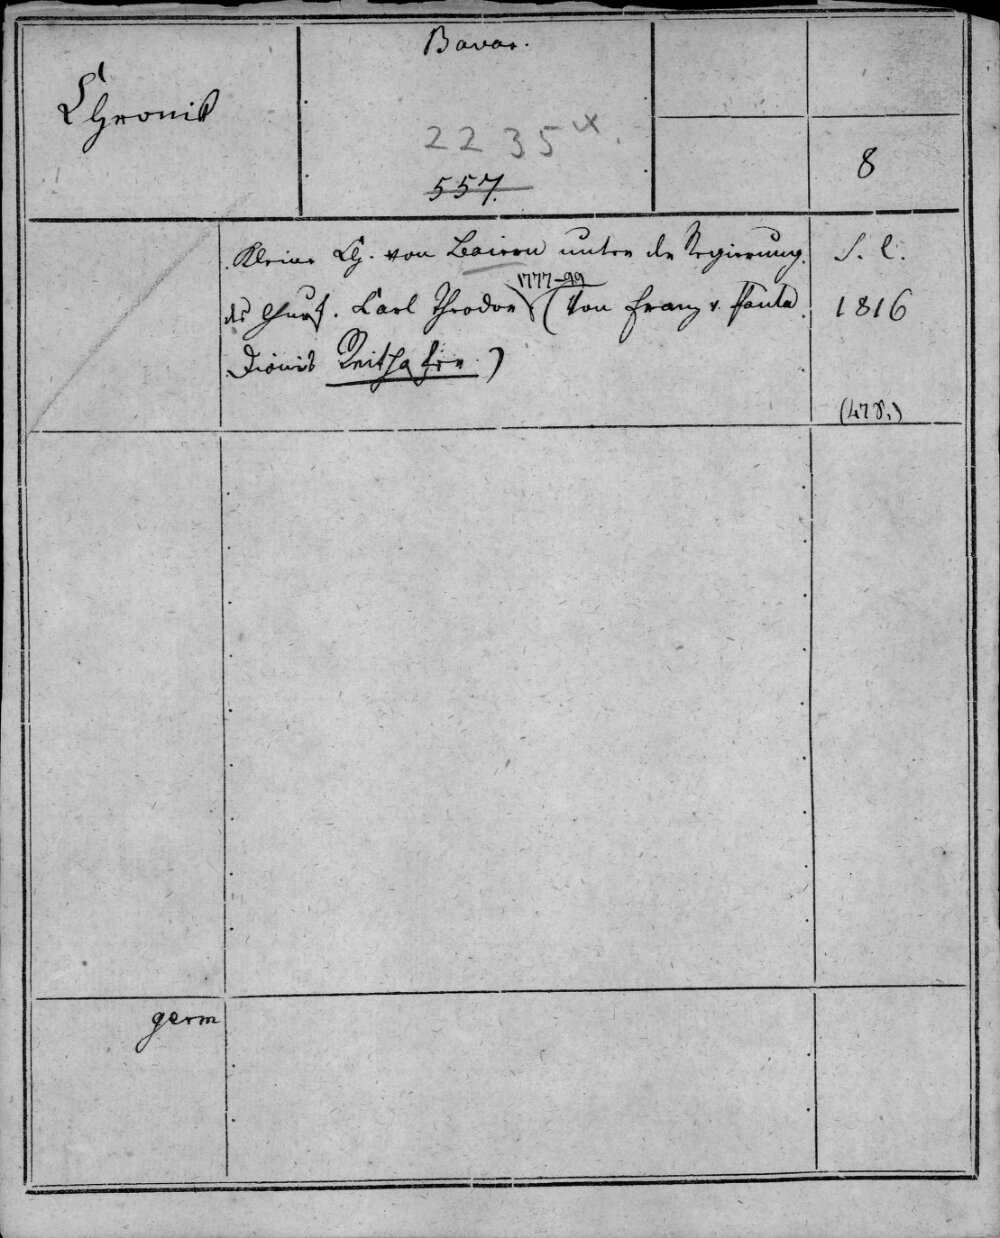 Bavar.
Chronik
2235 x.
557.
8
Kleine Ch. von Baiern unter der Regierung
des Churf. Carl Theodor 1777-99 (Von Franz v. Paula
Dionis Reithofer.)
S. l.
1816
(478.)
germ